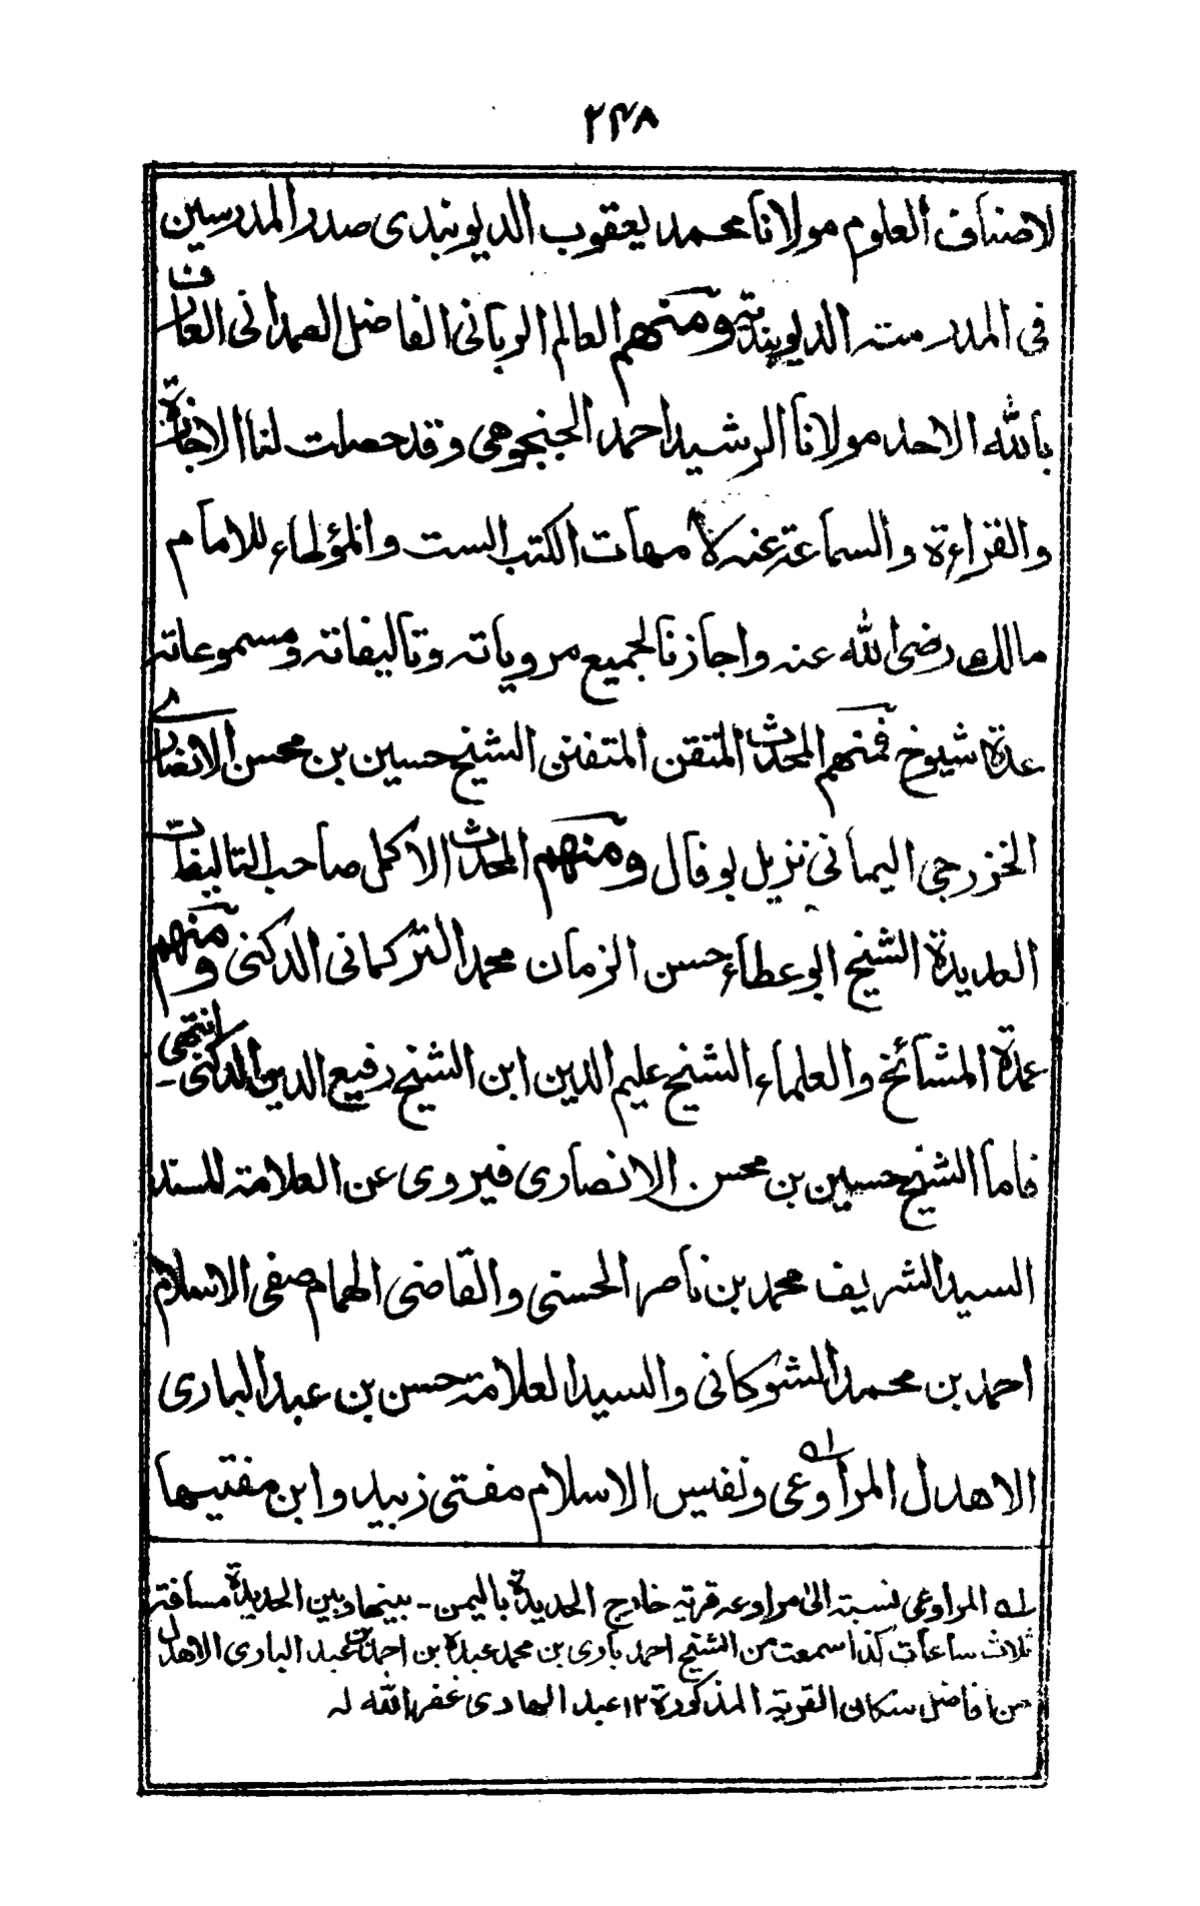 ۲۴۸
لاصناف العلوم مولانا محمد يعقوب الديوبندى صدر المدرسين
فى المدرسته الديوبندية ومنهم العالم الربانى الفاضل الصمدانى العارف
بالله الاحد مولانا الرشيد احمد الجنجوهى وقد حصلت لنا الاجازة
والقراءة والسماعة عنه لأمهات الكتب الست والمؤطاء للامام
مالك رضى الله عنه واجازنا لجميع مروياته وتاليفاته ومسموعاته
عدة شيوخ فمنهم المحدث المتقن المتفنن الشيخ حسين بن محسن الانصارى
الخزرجى اليمانى نزيل بوفال ومنهم المحدث الاكمل صاحب التاليفات
العديدة الشيخ ابو عطاء حسن الزمان محمد التركمانى الدكنى ومنهم
عمدة المشائخ والعلماء الشيخ عليم الدين ابن الشيخ رفيع الدين الدكنى انتهى۔
فاما الشيخ حسين بن محسن الانصارى فيروى عن العلامة المسند
السيد الشريف محمد بن ناصر الحسنى والقاضى الهمام صفى الاسلام
احمد بن محمد الشوكانى والسيد العلامة حسن بن عبد البارى
الاهدل المراوعى له ونفيس الاسلام مفتى زبيد وابن مفتيها
له المراوعى نسبته الى مراوعه قرية خارج الحديدة باليمن ۔ بينها وبين الحديدة مسافة
ثلاث ساعات كذا سمعت من الشيخ احمد بارى بن محمد عبده بن احمد بن عبد البارى الاهدل
من افاضل سكان القرية المذكورة ۱۲ عبد الهادى غفر الله له